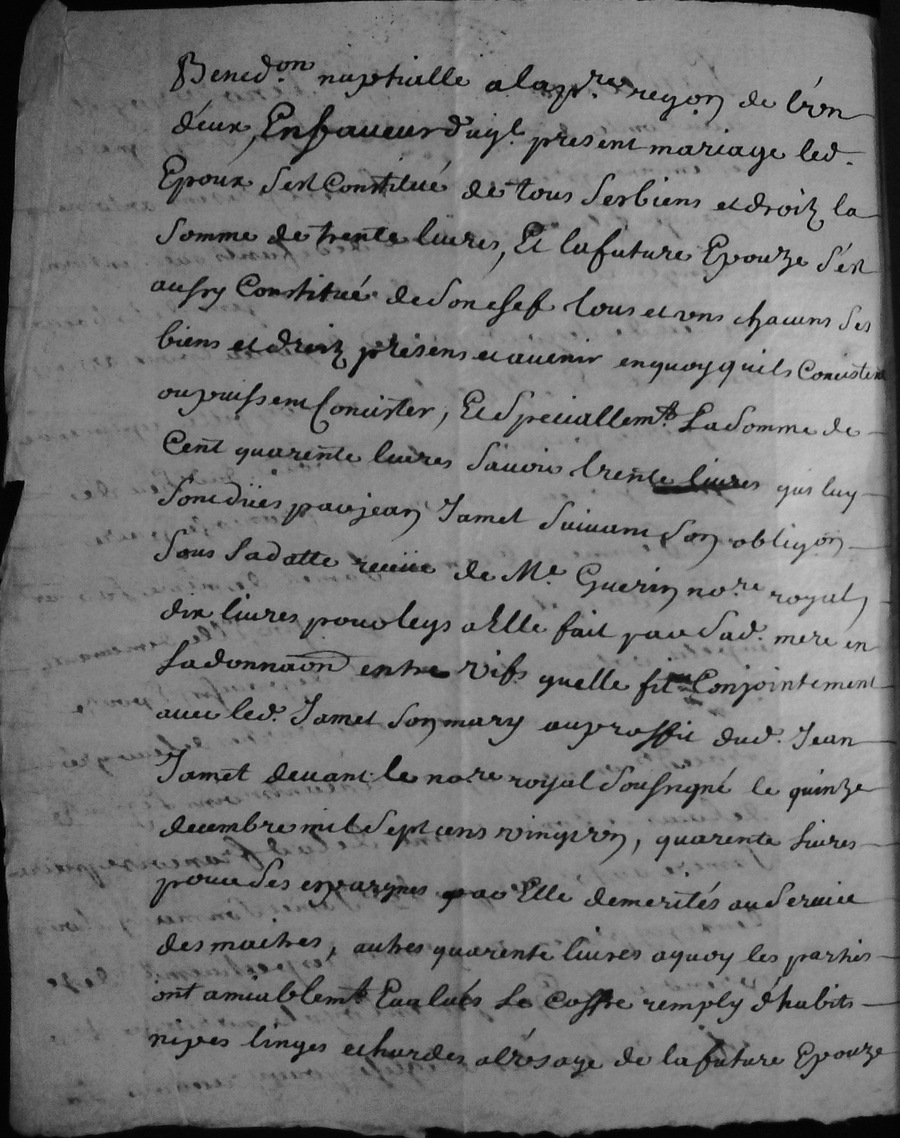 Bened.on nuptialle a la p.re req.on de l'vn
d'eux, En faueur duql. present mariage led.
Epoux s'est Constitué de tous ses biens et droitz la
somme de trente liures, Et la future Epouze s'est
aussy Constitué de son chef tous et vns chacuns ses
biens et droitz présens et auenir en quoy quils Concistent
ou puissent Concister, Et speciallem.t La somme de
Cent quarente liures sauoir trente liures qui luy
sont dües par jean Jamet suiuant son obligon
sous sa datte receüe de M.e Guerin no.re royal
dix liures pour legs a Elle fait par sad. mere en
La donnaon entre vifs quelle fit Conjointement
auec led. Jamet son mary au proffit dud. Jean
Jamet deuant le no.re royal soussigné le quinze
decembre mil sept cens vingt vn, quarente liures
pour ses epargnes par Elle demerités au seruice
des maitres, autres quarente liures a quoy les parties
ont amiablem.t Eualués Le coffre remply d'habits
nipes linges et hardes a l'vsage de la future Epouze